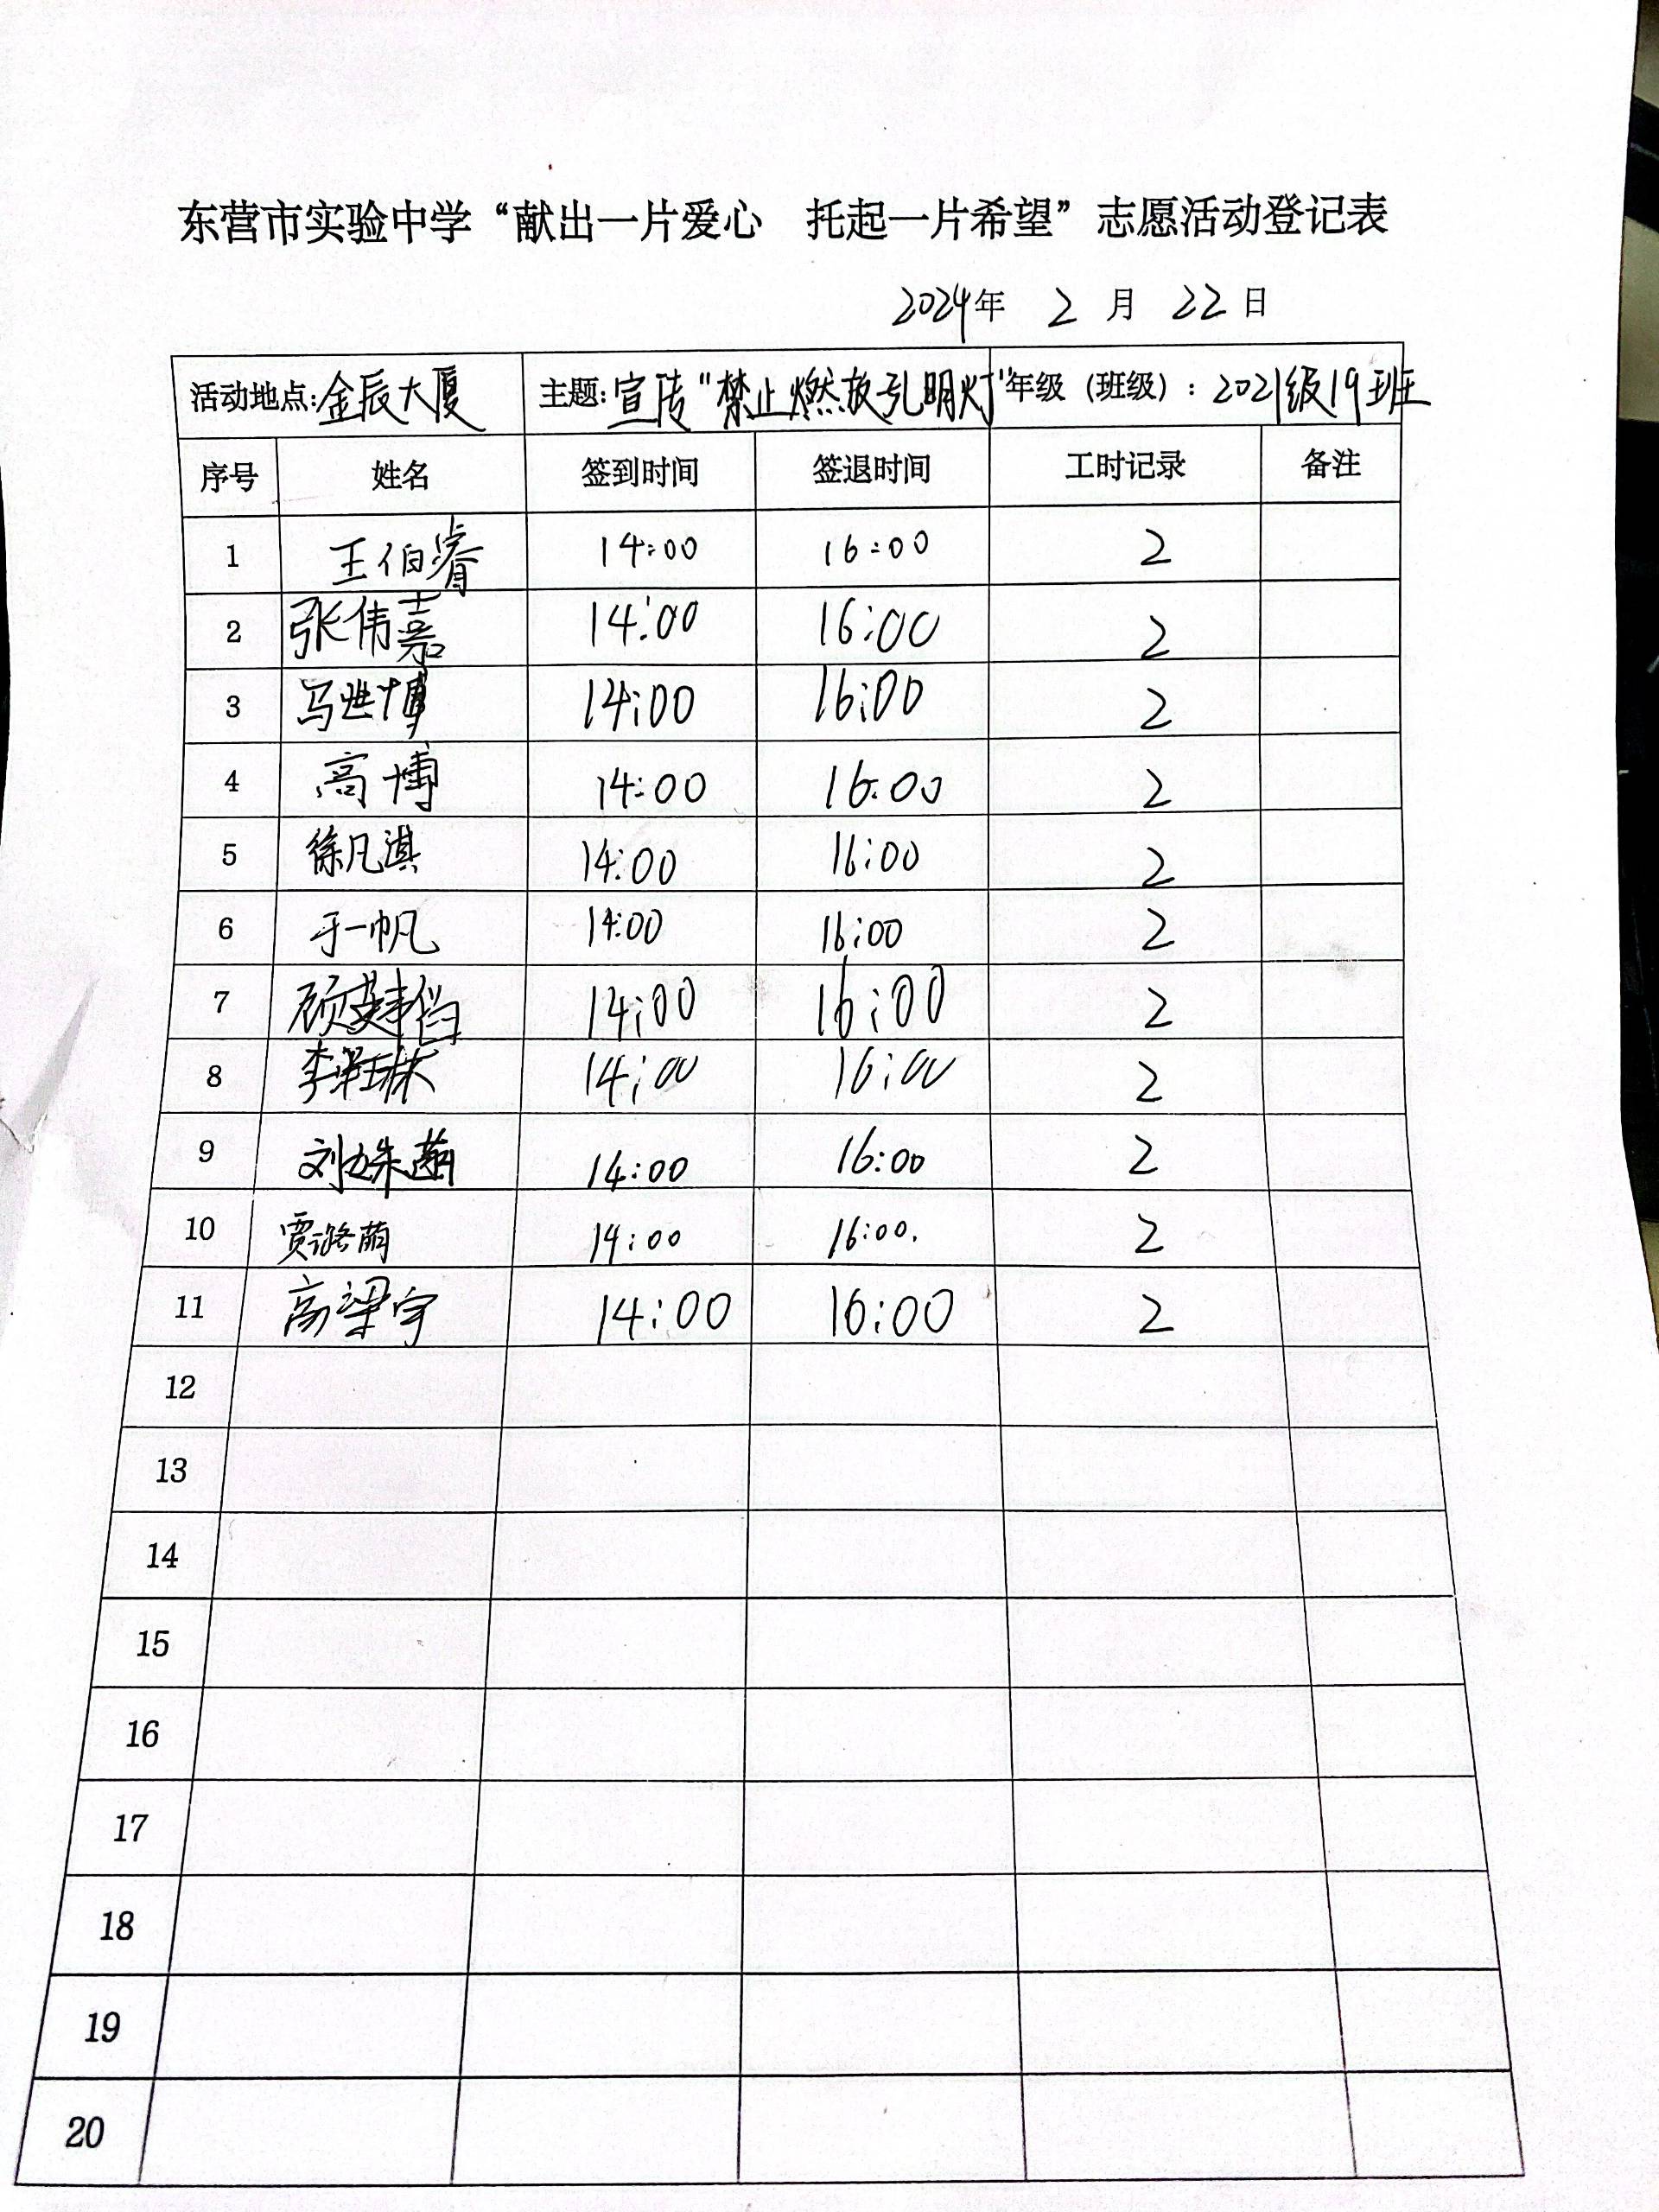 东营市实验中学“献出一片爱心 托起一片希望”志愿活动登记表
2024年 2 月 22 日
活动地点:金辰大厦 主题:宣传“禁止燃放孔明灯” 年级（班级）: 2021级19班
序号 姓名 签到时间 签退时间 工时记录 备注
1 王伯睿 14:00 16:00 2
2 张伟嘉 14:00 16:00 2
3 马世博 14:00 16:00 2
4 高博 14:00 16:00 2
5 徐凡淇 14:00 16:00 2
6 于一帆 14:00 16:00 2
7 14:00 16:00 2
8 14:00 16:00 2
9 14:00 16:00 2
10 贾璐萌 14:00 16:00. 2
11 高梁宇 14:00 16:00 2
12
13
14
15
16
17
18
19
20